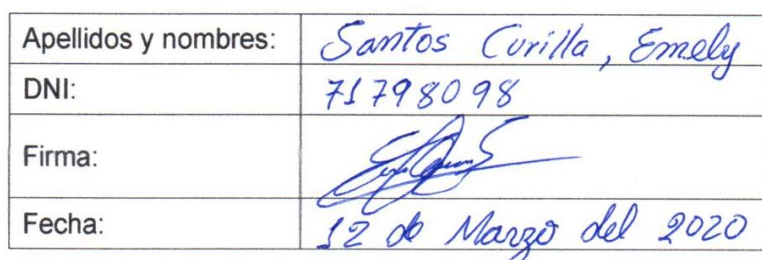 Apellidos y nombres: Santos Curilla, Emely
DNI: 71798098
Firma:
Fecha: 12 de Marzo del 2020